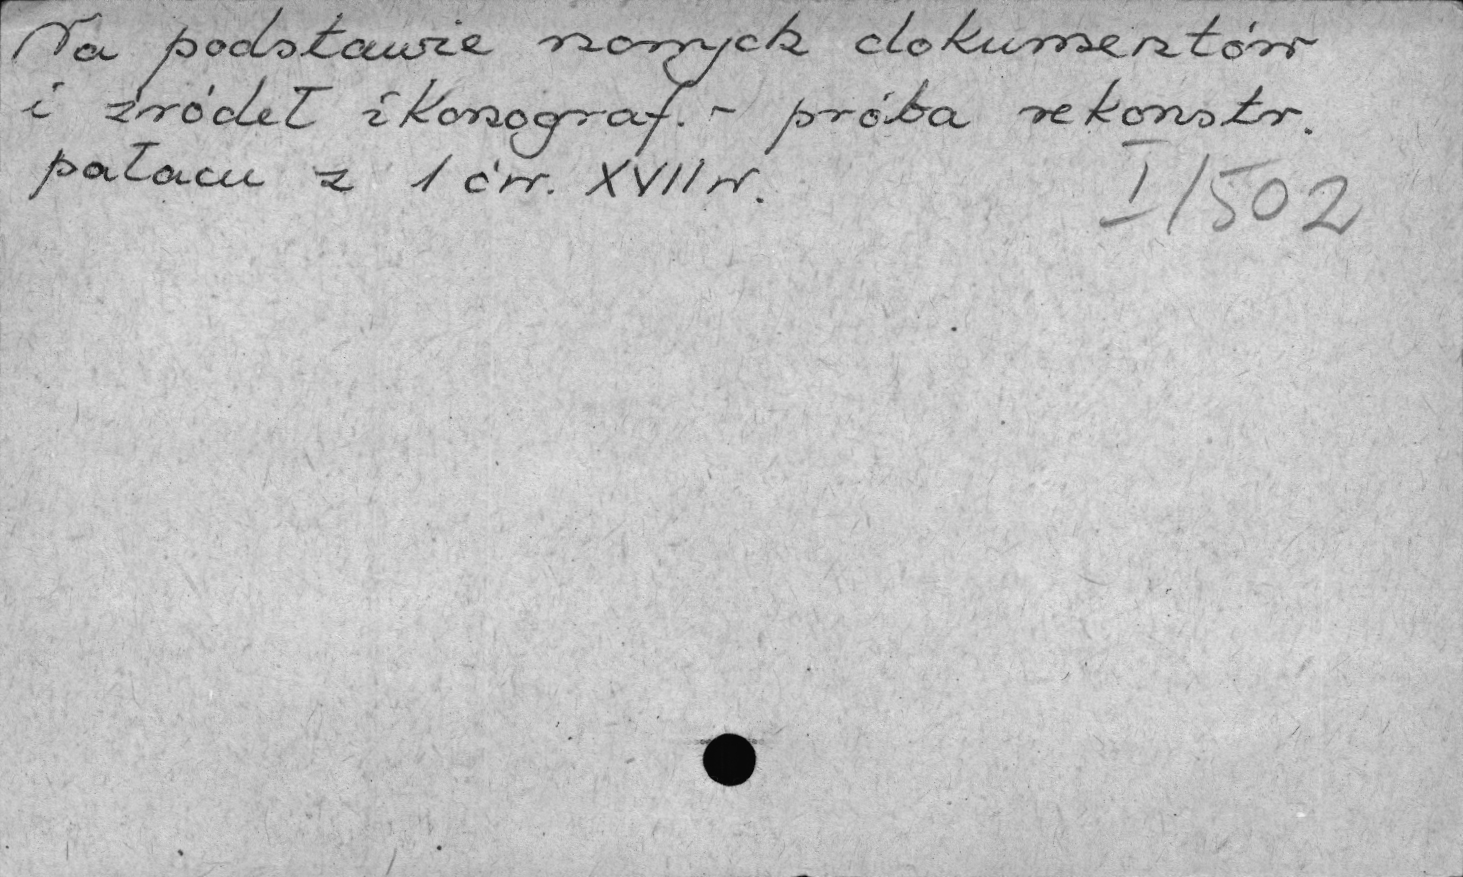 Na podstawie nowych dokumentów
i źródeł ikonograf. - próba rekonstr.
pałacu z 1 ćw. XVII w.
I/502